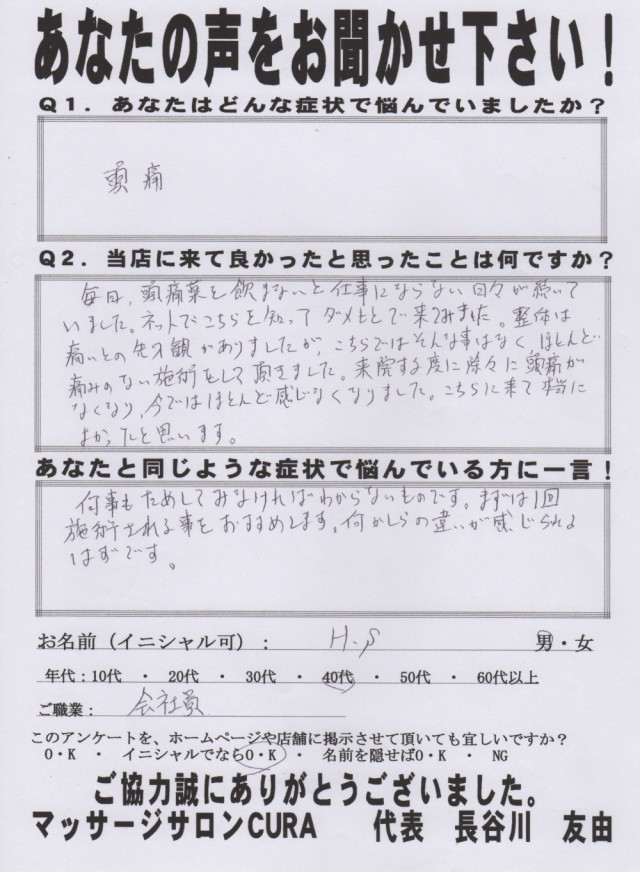 あなたの声をお聞かせ下さい！
Ｑ１．あなたはどんな症状で悩んでいましたか？
頭痛
Ｑ２．当店に来て良かったと思ったことは何ですか？
毎日、頭痛薬を飲まないと仕事にならない日々が続いて
いました。ネットでこちらを知ってダメもとで来てみました。整体は
痛いとの先入観がありましたが、こちらではそんな事はなく、ほとんど
痛みのない施術をして頂きました。来院する度に除々に頭痛が
なくなり、今ではほとんど感じなくなりました。こちらに来て本当に
よかったと思います。
あなたと同じような症状で悩んでいる方に一言！
何事もためしてみなければわからないものです。まずは1回
施術される事をおすすめします。何かしらの違いが感じられる
はずです。
お名前（イニシャル可）： H.S 男・女
年代：10代 ・ 20代 ・ 30代 ・ 40代 ・ 50代 ・ 60代以上
ご職業： 会社員
このアンケートを、ホームページや店舗に掲示させて頂いても宜しいですか？
O・K ・ イニシャルでならO・K ・ 名前を隠せばO・K ・ NG
ご協力誠にありがとうございました。
マッサージサロンCURA 代表 長谷川 友由